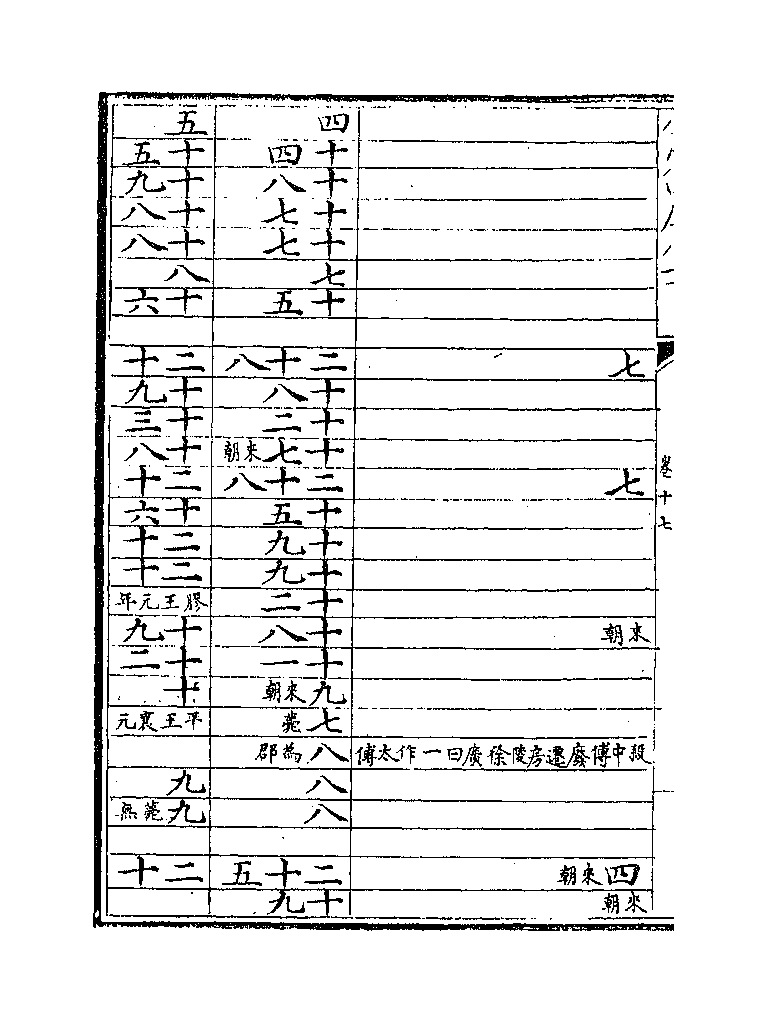 卷十七
七
七
來朝
殺中傅廢遷房陵徐廣曰一作太傅
四來朝
來朝
四
十四
十八
十七
十七
七
十五
二十八
十八
十二
十七來朝
二十八
十五
十九
十九
十二
十八
十一
九來朝
七薨
八為郡
八
八
二十五
十九
五
十五
十九
十八
十八
八
十六
二十
十九
十三
十八
二十
十六
二十
二十
膠王元年
十九
十二
十
平王襄元
九
九薨無
二十